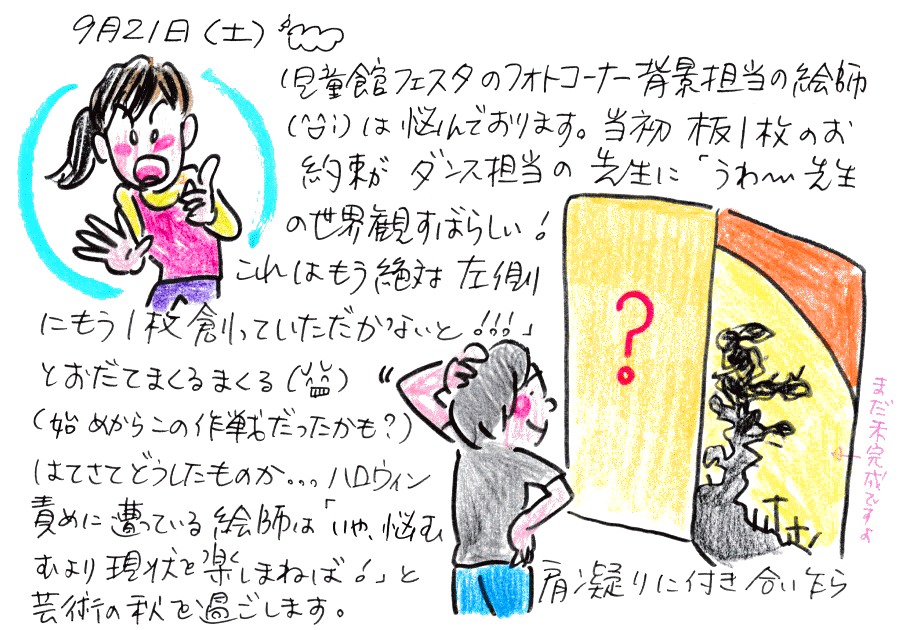 9月21日(土)
児童館フェスタのフォトコーナー背景担当の絵師
は悩んでおります。当初 板1枚のお
約束が ダンス担当の 先生に「うわ〜先生
の世界観すばらしい!
これはもう絶対 左側
にもう1枚創っていただかないと!!!」
とおだてまくるまくる
(始めからこの作戦だったかも?)
はてさてどうしたものか... ハロウィン
責めに遭っている絵師は「いや、悩む
むより現状を楽しまねば!」と
芸術の秋を過ごします。
?
まだ未完成ですよ
肩凝りに付き合いながら